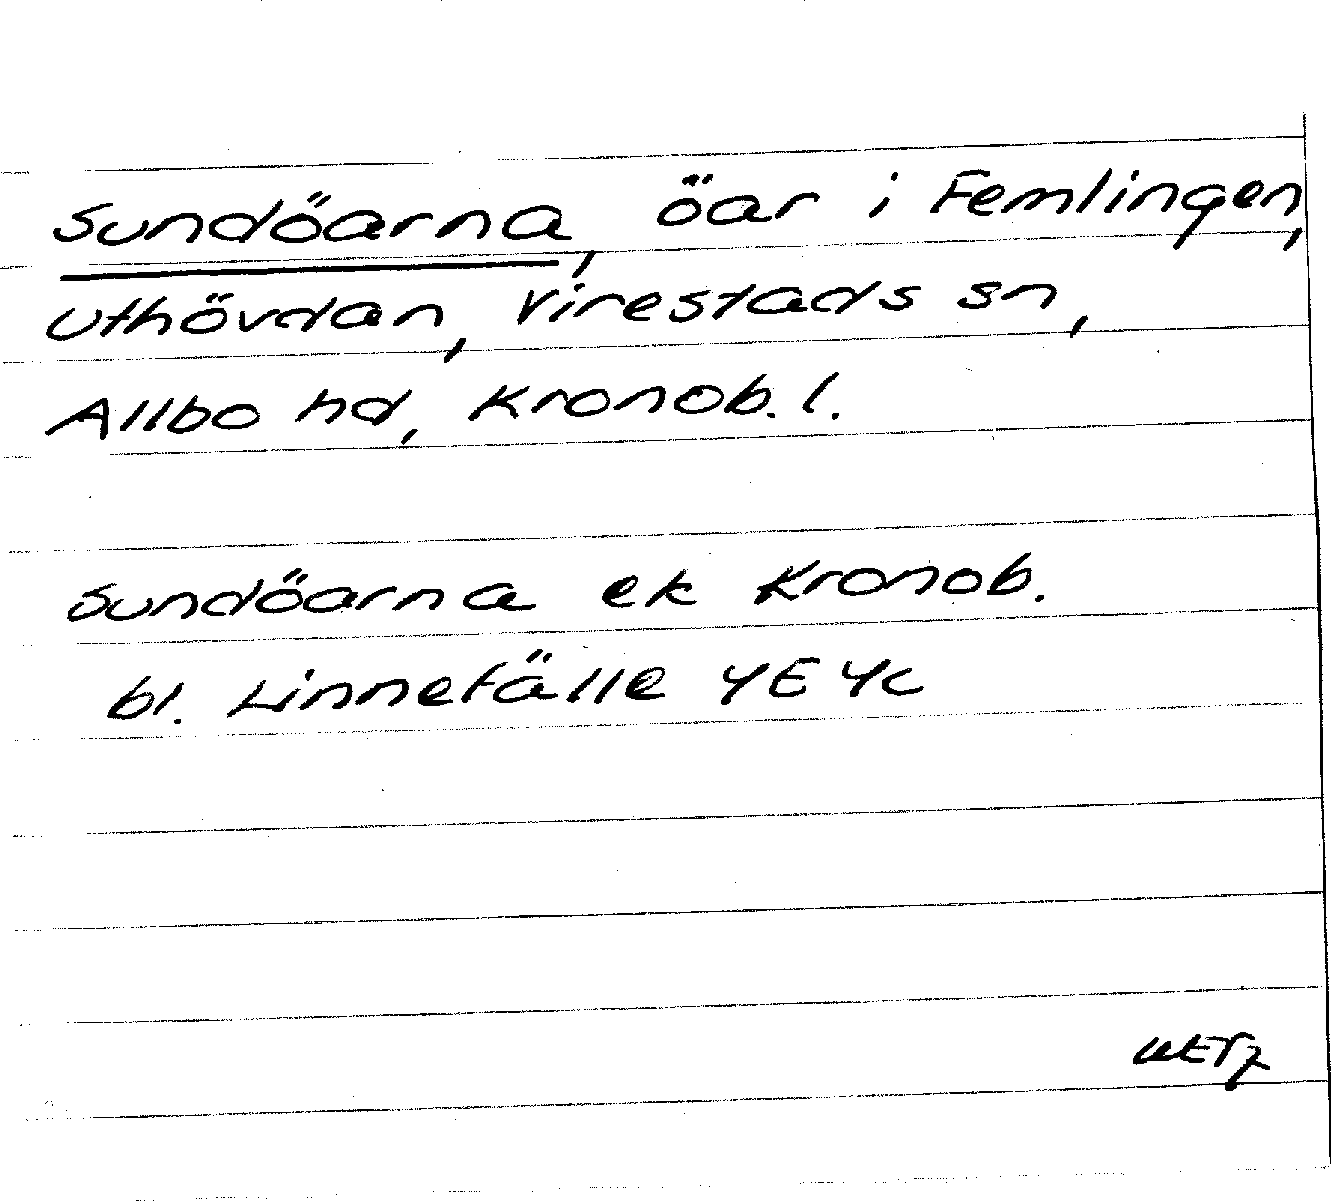 Sundöarna, öar i Femlingen,
uthövdan, Virestads sn,
Allbo hd, Kronob. l.
Sundöarna ek Kronob.
bl. Linnefälle 4E 4c